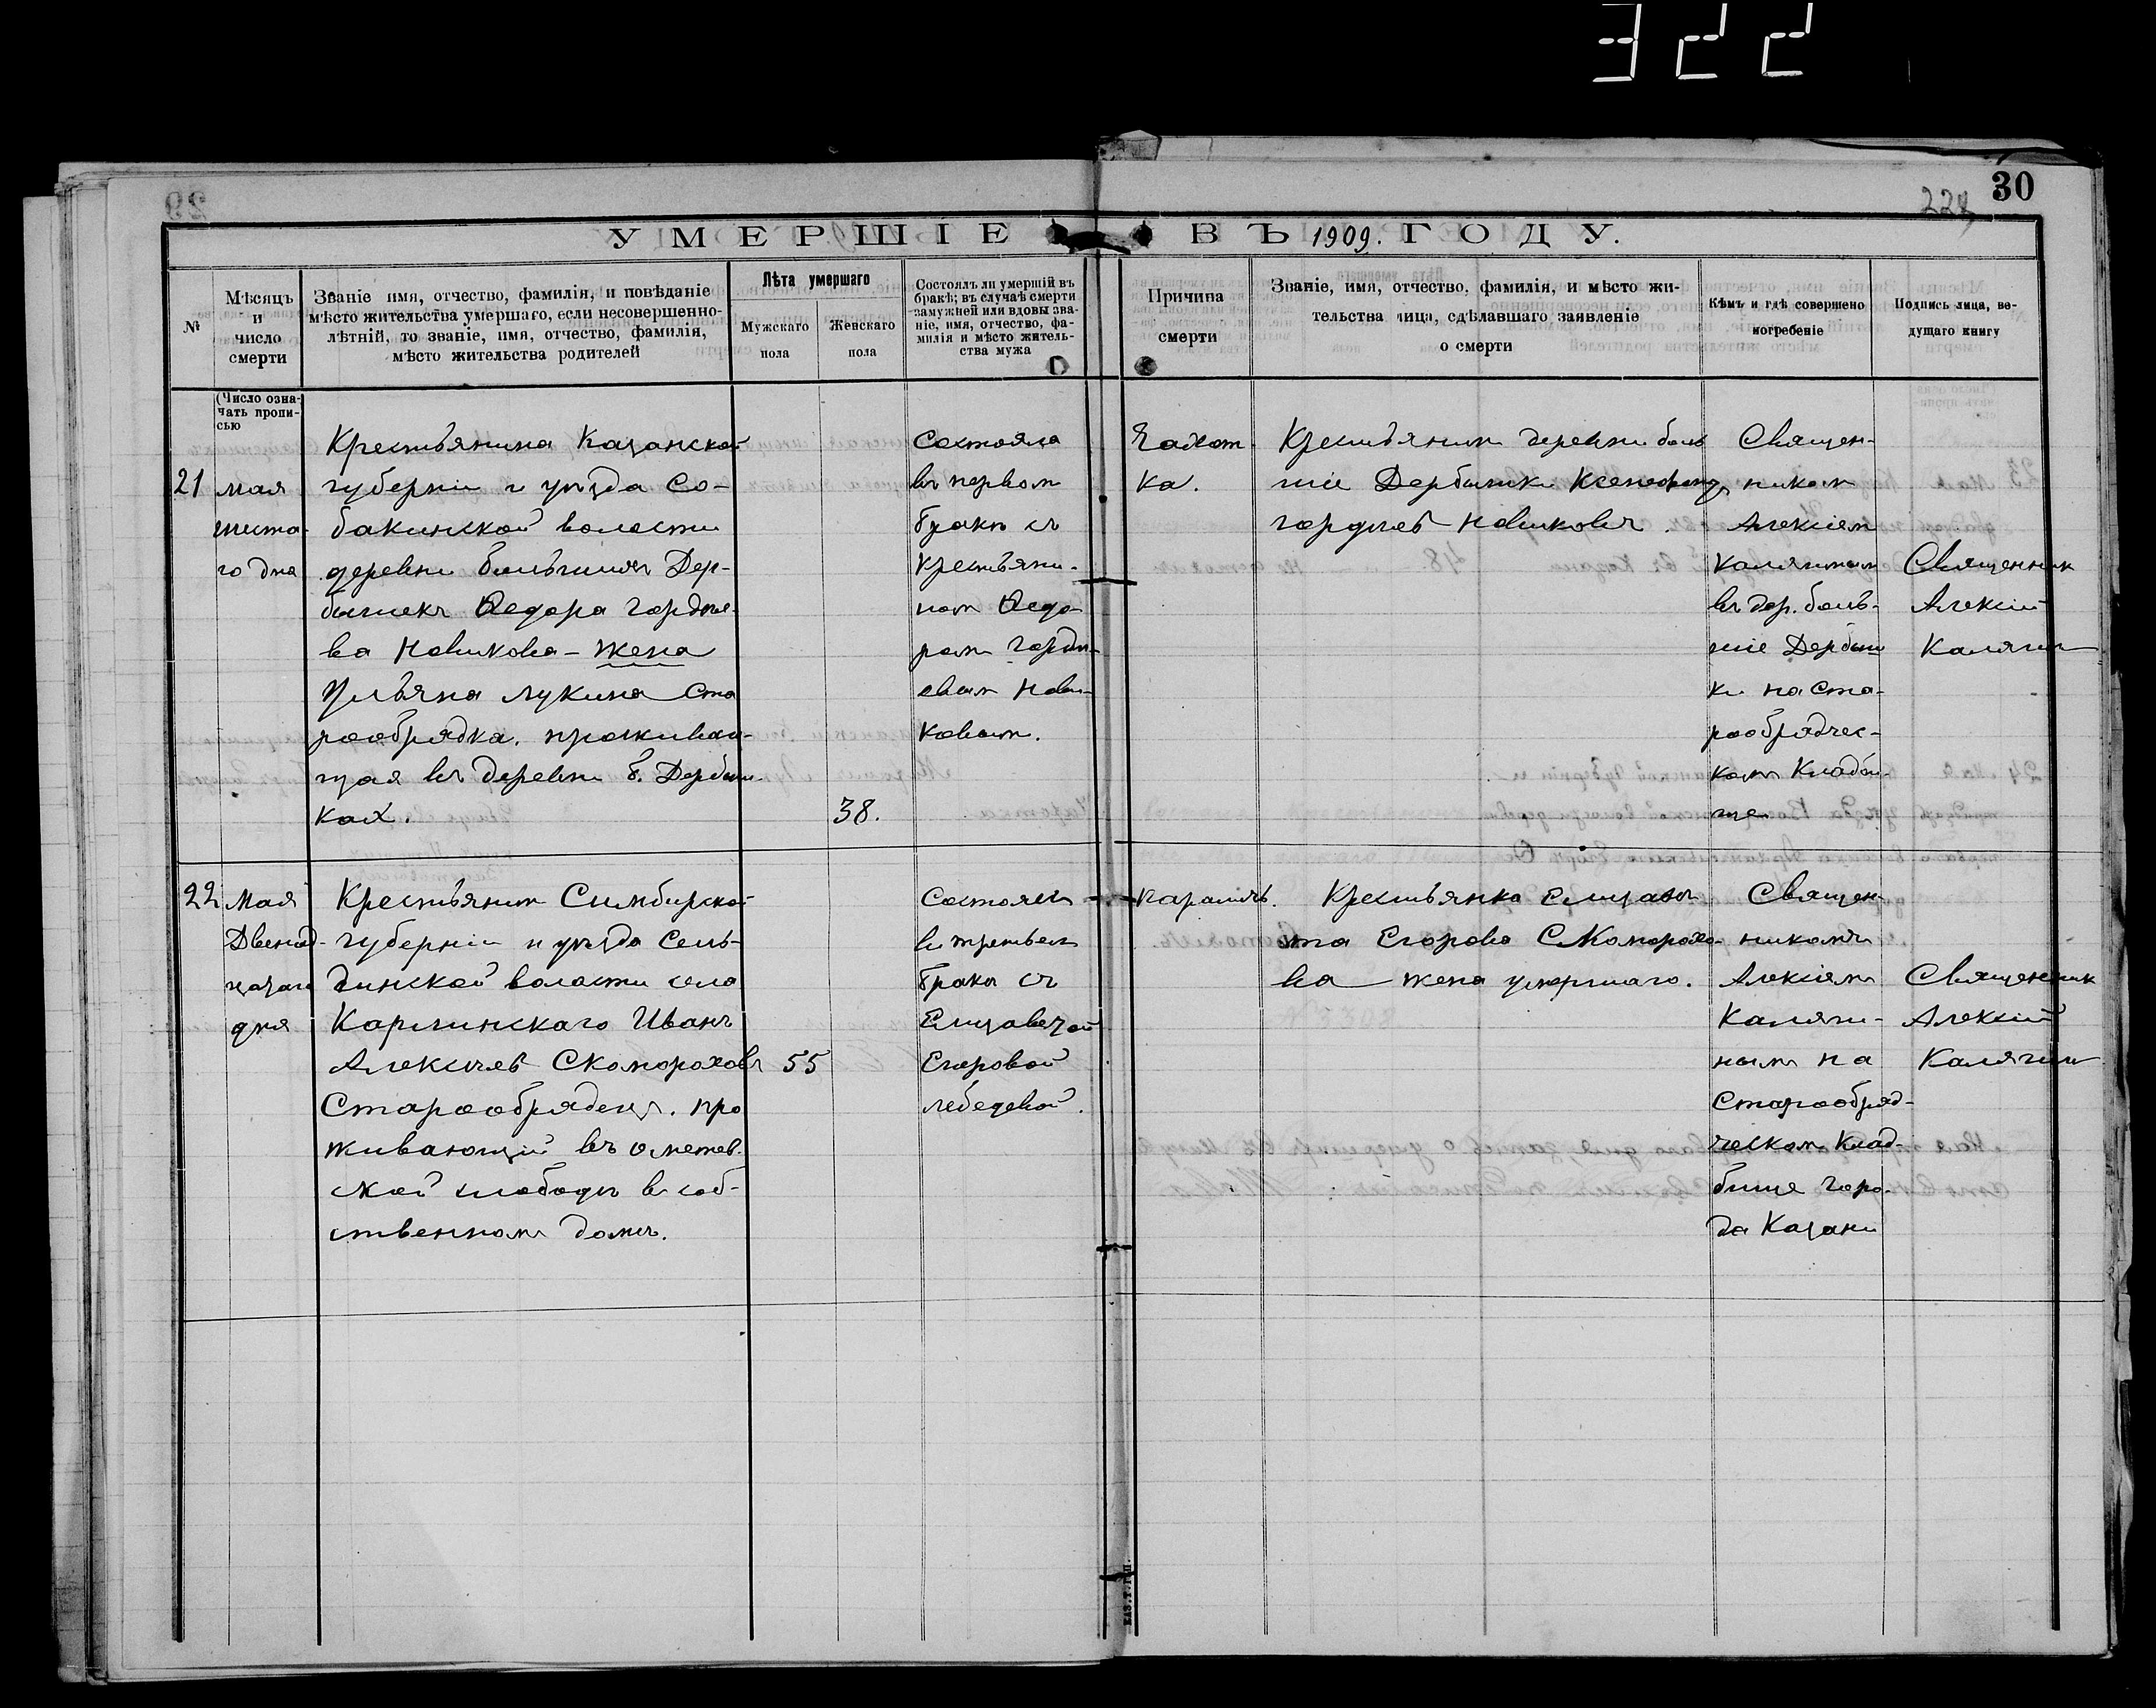 322
29
30
224
УМЕРШІЕ ВЪ 1909. ГОДУ.
№
Мѣсяцъ
и
число
смерти
Званіе имя, отчество, фамилія, и повѣданіе
мѣсто жительства умершаго, если несовершенно-
лѣтній, то званіе, имя, отчество, фамилія,
мѣсто жительства родителей
Лѣта умершаго
Мужскаго
пола
Женскаго
пола
Состоялъ ли умершій въ
бракѣ; въ случаѣ смерти
замужней или вдовы зва-
ніе, имя, отчество, фа-
милія и мѣсто житель-
ства мужа
Причина
смерти
Званіе, имя, отчество, фамилія, и мѣсто жи-
тельства лица, сдѣлавшаго заявленіе
о смерти
Кѣмъ и гдѣ совершено
погребеніе
Подпись лица, ве-
дущаго книгу
(Число озна-
чать пропи-
сью
21
мая
шеста-
го дня
Крестьянина Казанской
губерніи и уѣзда Со-
бакинской волости
деревни большихъ Дер-
бышекъ Ѳедора Гордѣе-
ва Новикова - жена
Ульяна Лукина ста
рообрядка. проживаю-
щая въ деревни б. Дербыш-
ках.
38.
Состояла
въ первом
бракѣ съ
крестьяни-
ном Ѳедо-
ром Гордѣ-
евым Нови-
ковым.
Чахот-
ка.
Крестьянин деревни боль
шіе Дербышки Ксенофонтъ
гордѣев Новиковъ.
Священ-
ником
Алексіем
Калягиным
въ дер. боль-
шіе Дербыш
ки на ста-
рообрядчес-
ком кладби-
ще
Священник
Алексій
Калягин
22
Мая
Двенад-
цатаго
дня
Крестьянин Симбирской
губерніи и уѣзда Сель-
динской волости села
Карлинскаго Иванъ
Алексѣев Скомороховъ
Старообрядецъ. про
живающій въ ометев.
ской слободѣ в соб-
ственном домѣ.
55
Состоялъ
въ третьем
бракѣ съ
Елизаветой
Егоровой
лебедевой.
Параличъ.
Крестьянка Елизаве
та Егорова Скоморохо-
ва жена умершаго.
Священ
никомъ
Алексіем
Каляги-
ным на
Старообряд-
ческом клад-
бище горо-
да Казани
Священник
Алексій
Калягин
КАЗ. Т. Г. П.